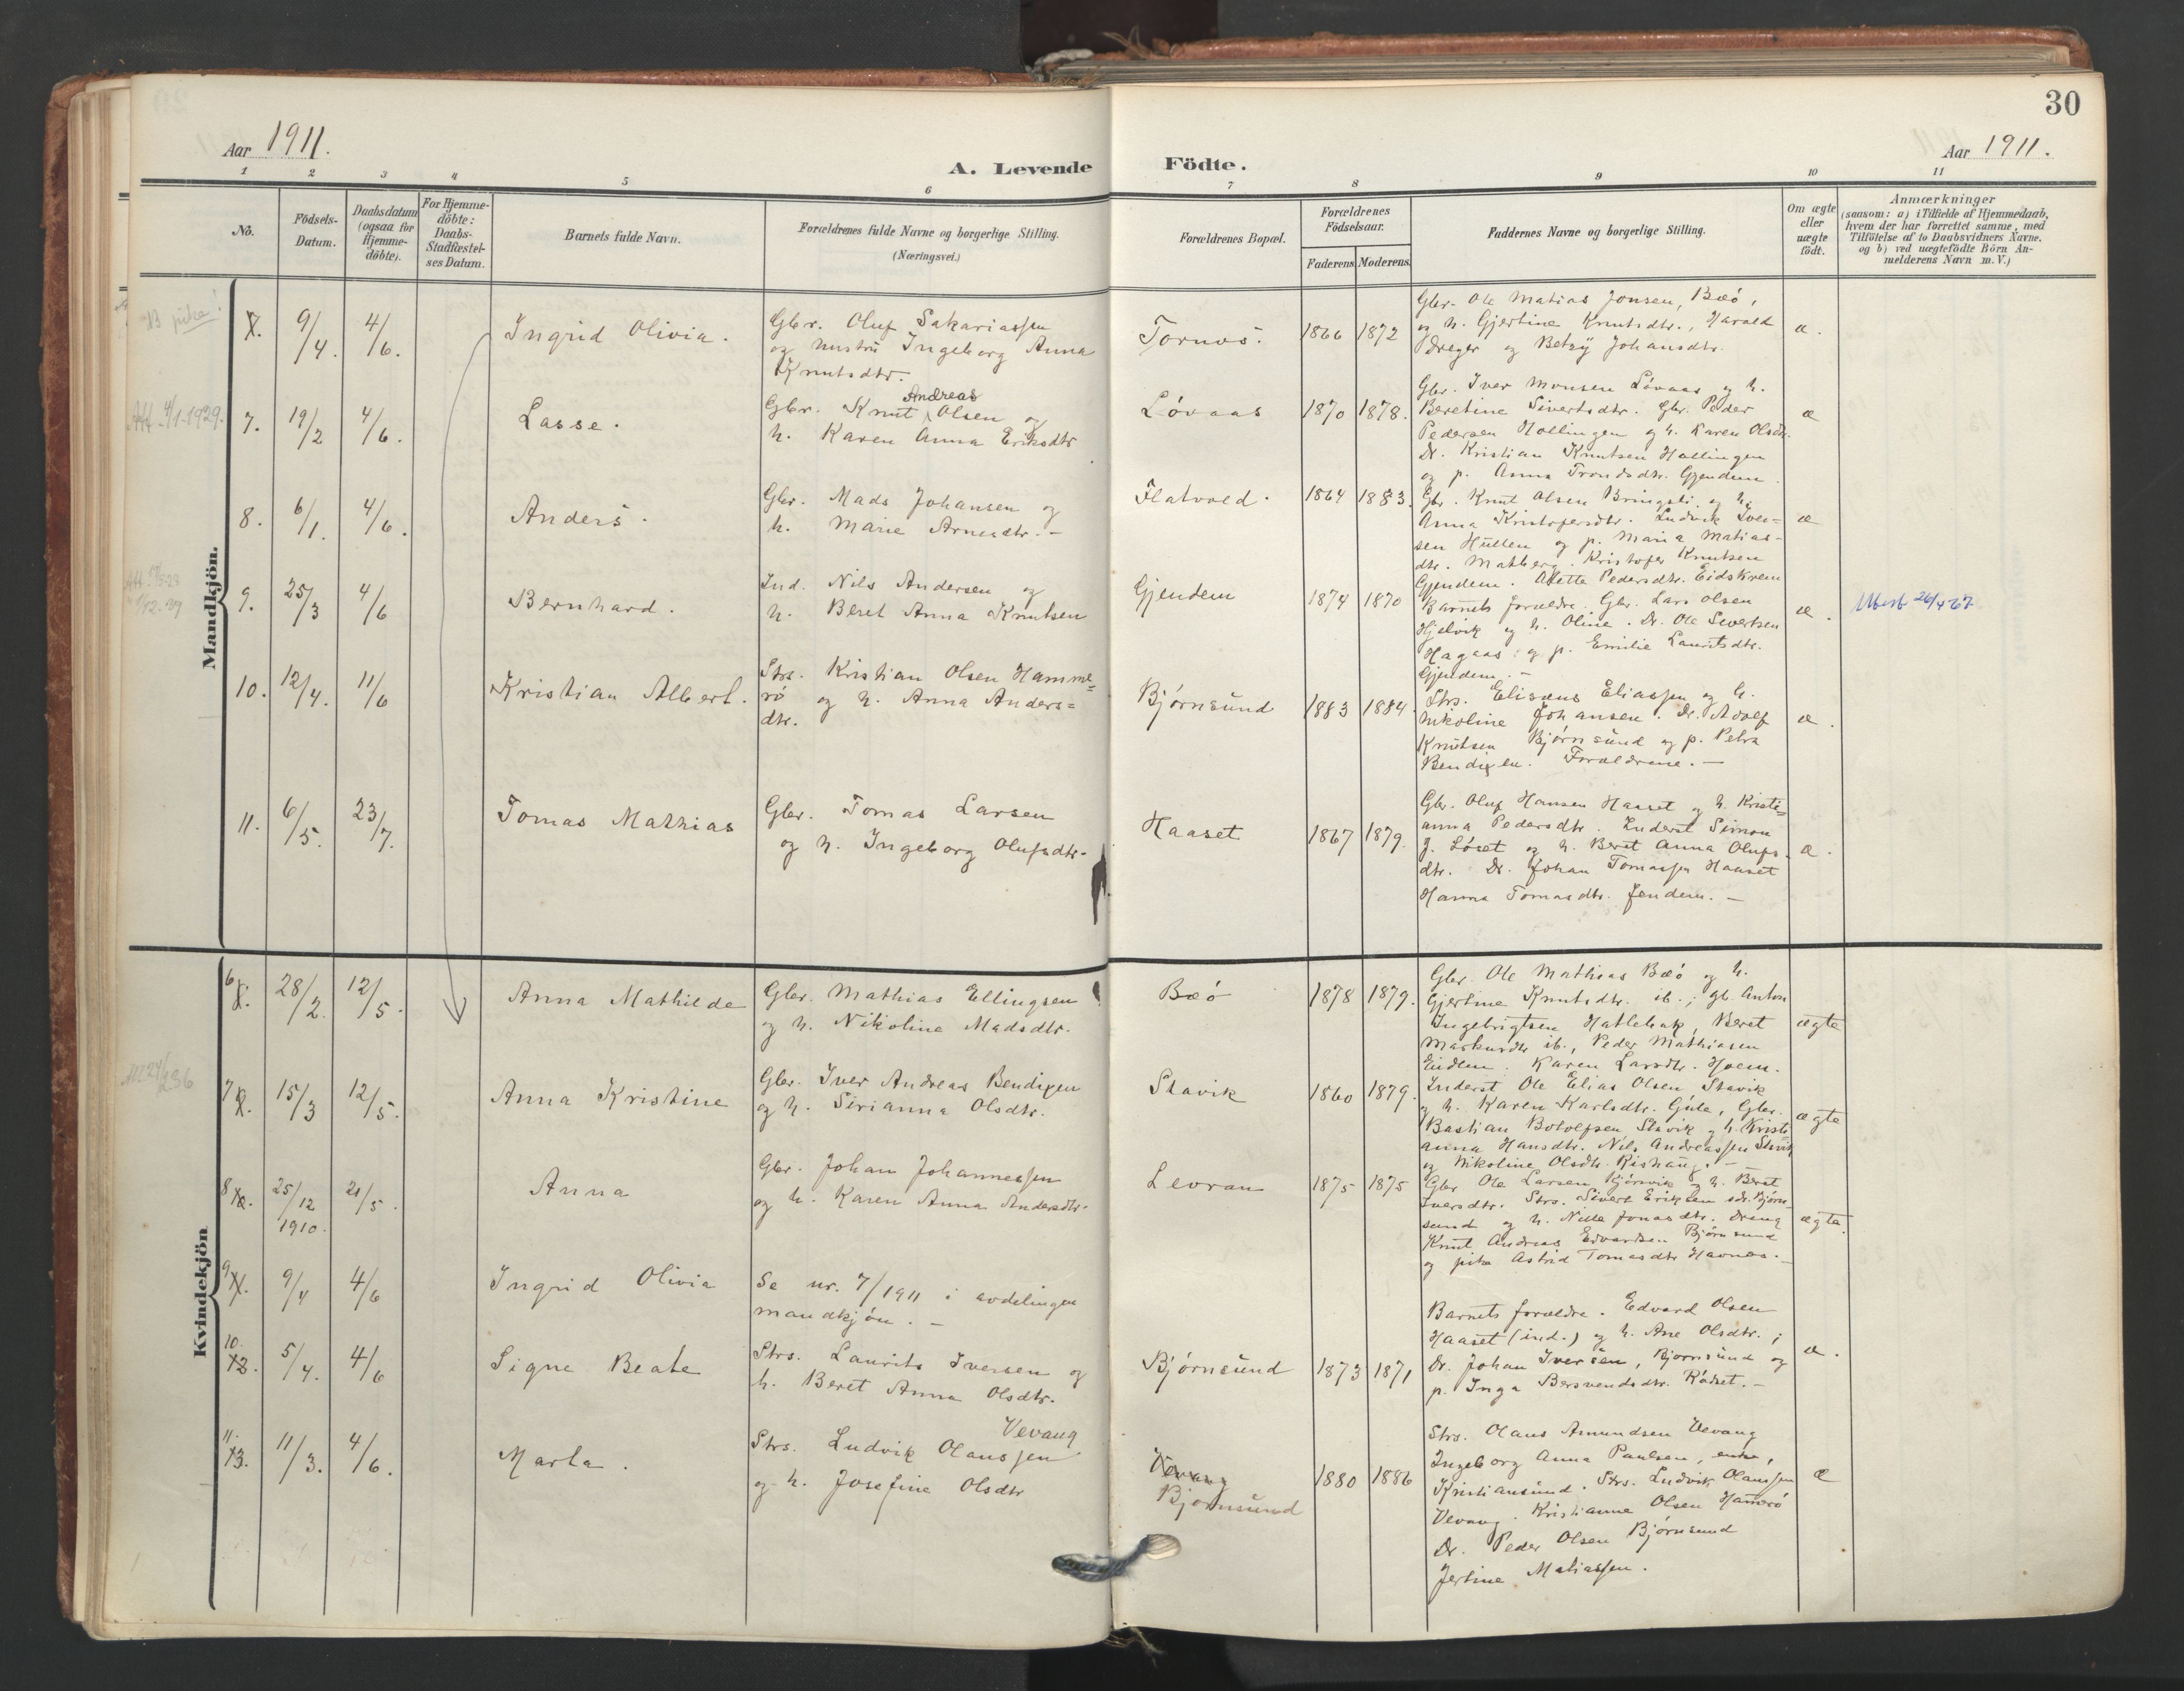 30
Aar 1911.
A. Levende Födte.
Aar 1911.
1 2 3 4 5 6 7 8 9 10 11
No.
Födsels-Datum.
Daabsdatum (ogsaa for Hjemme-döbte).
For Hjemme-döbte: Daabs-Stadfæstel-ses Datum.
Barnets fulde Navn.
Forældrenes fulde Navne og borgerlige Stilling.
(Næringsvei.)
Forældrenes Bopæl.
Forældrenes Födselsaar.
Faderens Moderens.
Faddernes Navne og borgerlige Stilling.
Om ægte eller uægte födt.
Anmærkninger
(saasom: a) i Tilfælde af Hjemmedaab,
hvem der har forrettet samme, med
Tilfötelse af to Daabsvidners Navne.
og b) ved uægtefödte Börn An-
melderens Navn m. V.)
Mandkjön.
pike!
7. 9/4. 4/6. Ingrid Olivia.
Gbr. Oluf Sakariassen
og hustru Ingeborg Anna
Knutsdtr.
Tornes. 1866 1872
Gbr. Ole Matias Jonsen, Bæó,
og h. Gjertine Knutsdtr., Harald
Dreyer og Betzy Johansdtr.
æ.
Att. 4/1-1929.
7. 19/2 4/6. Lasse.
Gbr. Knut Andreas Olsen og
h. Karen Anna Eriksdtr
Lóvaas 1870 1878.
Gbr. Iver Monsen Lóvaas og h.
Beretine Sivertsdtr. Gbr. Peder
Pedersen Hollingen og h. Karen Olsdtr.
Dr. Kristian Knutsen Hollingen
og p. Anna Trondsdtr. Gjendem.
æ
8. 6/1. 4/6. Anders.
Gbr. Mads Johansen og
h. Marie Arnesdtr. -
Flatvold. 1864 1883.
Gbr. Knut Olsen Bringsli og h.
Anna Kristofersdtr. Ludvik Iver=
sen Hullen og p. Maria Matias-
dtr. Malberg. Kristofer Knutsen
Gjendem. Aletta Pedersdtr. Eidskrem
æ
9. 25/3 4/6 Bernhard.
Ind. Nils Andersen og
h. Beret Anna Knutsen
Gjendem 1874 1870
Barnets forældre. Gbr. Lars Olsen
Hjelvik og h. Oline. Dr. Ole Sivertsen
Hagaas og p. Emilie Lauritsdtr.
Gjendem. -
æ.
10. 12/4. 11/6 Kristian Albert.
Strs. Kristian Olsen Hamme=
ró og h. Anna Anders=
dtr.
Bjórnsund 1883 1884.
Strs. Elisæus Eliassen og h.
Nikoline Johansen. Dr. Adolf
Knutsen Bjórnsund og p. Petra
Bendixen. Forældrene. -
æ.
11. 6/5. 23/7. Tomas Mathias
Gbr. Tomas Larsen
og h. Ingeborg Olufsdtr.
Haaset 1867 1879.
Gbr. Oluf Hansen Haaset og h. Kristi=
anna Pedersdtr. Inderst Simon
J. Lóset og h. Beret Anna Olufs-
dtr. Dr. Johan Tomassen Haaset
Hanna Tomasdtr. Jendem. -
æ.
Kvindekjön
6 28/2. 12/5. Anna Mathilde
Gbr. Mathias Ellingsen
og h. Nikoline Madsdtr.
Bæó 1878 1879.
Gbr. Ole Mathias Bæó og h.
Gjertine Knutsdtr. ib.; gb. Anton
Ingebrigtsen Hatlebak, Beret
Markusdtr ib., Peder Mathiasen
Karen Larsdtr. Hoem.
ægte
7 15/3 12/5. Anna Kristine
Gbr. Iver Andreas Bendixen
og h. Sirianna Olsdtr.
Stavik 1860 1879.
Inderst Ole Elias Olsen Stavik
og h. Karen Karlsdtr. Gule, Gbr.
Bastian Botolfsen Stavik og h. Kristi
anna Hansdtr. Nils Andreassen Stavik
og Nikoline Olsdtr. Rishaug. -
ægte
8 25/12 1910. 21/5. Anna
Gbr. Johan Johannessen
og h. Karen Anna Andersdtr.
Levran 1875 1875
Gbr Ole Larsen Bjórnvik og h. Beret
Iversdtr. Strs. Sivert Eriksen sdr. Bjórn-
sund og h. Nille Jonasdtr. Dreng
Knut Andreas Edvardsen Bjórnsund
og pike Astrid Tomasdtr Havnes. -
ægte
9 9/4 4/6 Ingrid Olivia
Se nr. 7/1911 i avdelingen
mandkjón. -
10. 12. 5/4. 4/6 Signe Beate
Strs. Laurits Iversen og
h. Beret Anna Olsdtr.
Bjórnsund 1873 1871
Barnets forældre. Edvard Olsen
Haaset (ind.) og h. Ane Olsdtr.;
Dr. Johan Iversen, Bjornsund og
p. Inga Bersvendsdtr. Ródset. -
æ.
11. 13. 11/3. 4/6. Marta.
Strs. Ludvik Olaussen Vevang
og h. Josefine Olsdtr
Vevang
Bjornsund
1880 1886
Strs. Olaus Amundsen Vevang
Ingeborg Anna Paulsen, enke,
Kristiansund. Strs. Ludvik Olaussen
Vevang. Kristianne Olsen Hameró
Dr. Peder Olsen Bjórnsund
Jertine Matiassen.
Æ